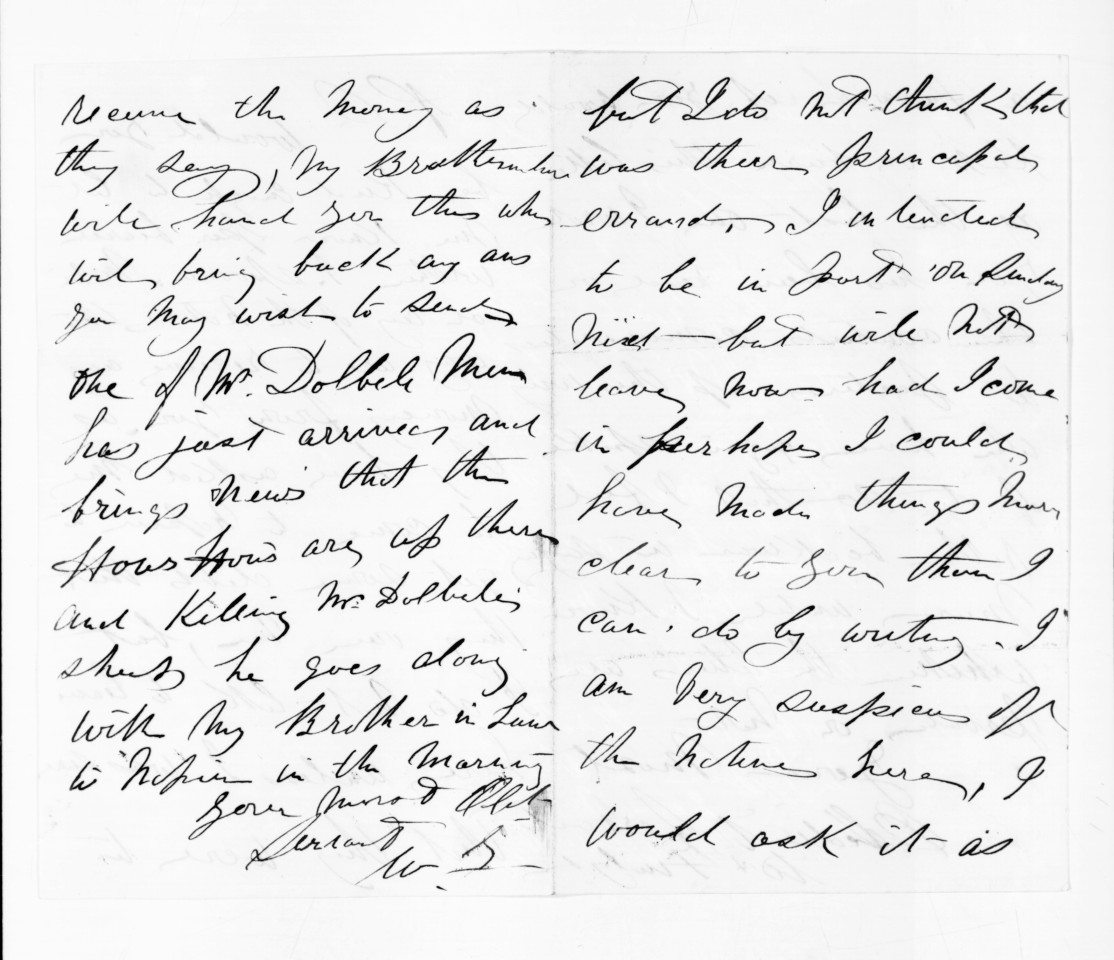 receive the Money as
they say, My Brotherinlaw
will hand you this who
will bring back any ans
you May wish to send
One of Mr. Dolbels Men
has just arrived and
brings news that the
Hous Hous are up there
and Killing Mr. Dolbels
sheep he goes along
with My Brother in Law
to Napier in the Morning
Your Most Obt
Servant
W.
but I do not think that
was their principal
errand, I intended
to be in port on Sunday
Next - but will not
leave now had I come
in perhaps I could
have Made things More
clear to you than I
can do by writing. I
am Very suspicious of
the Natives here, I
would ask it as